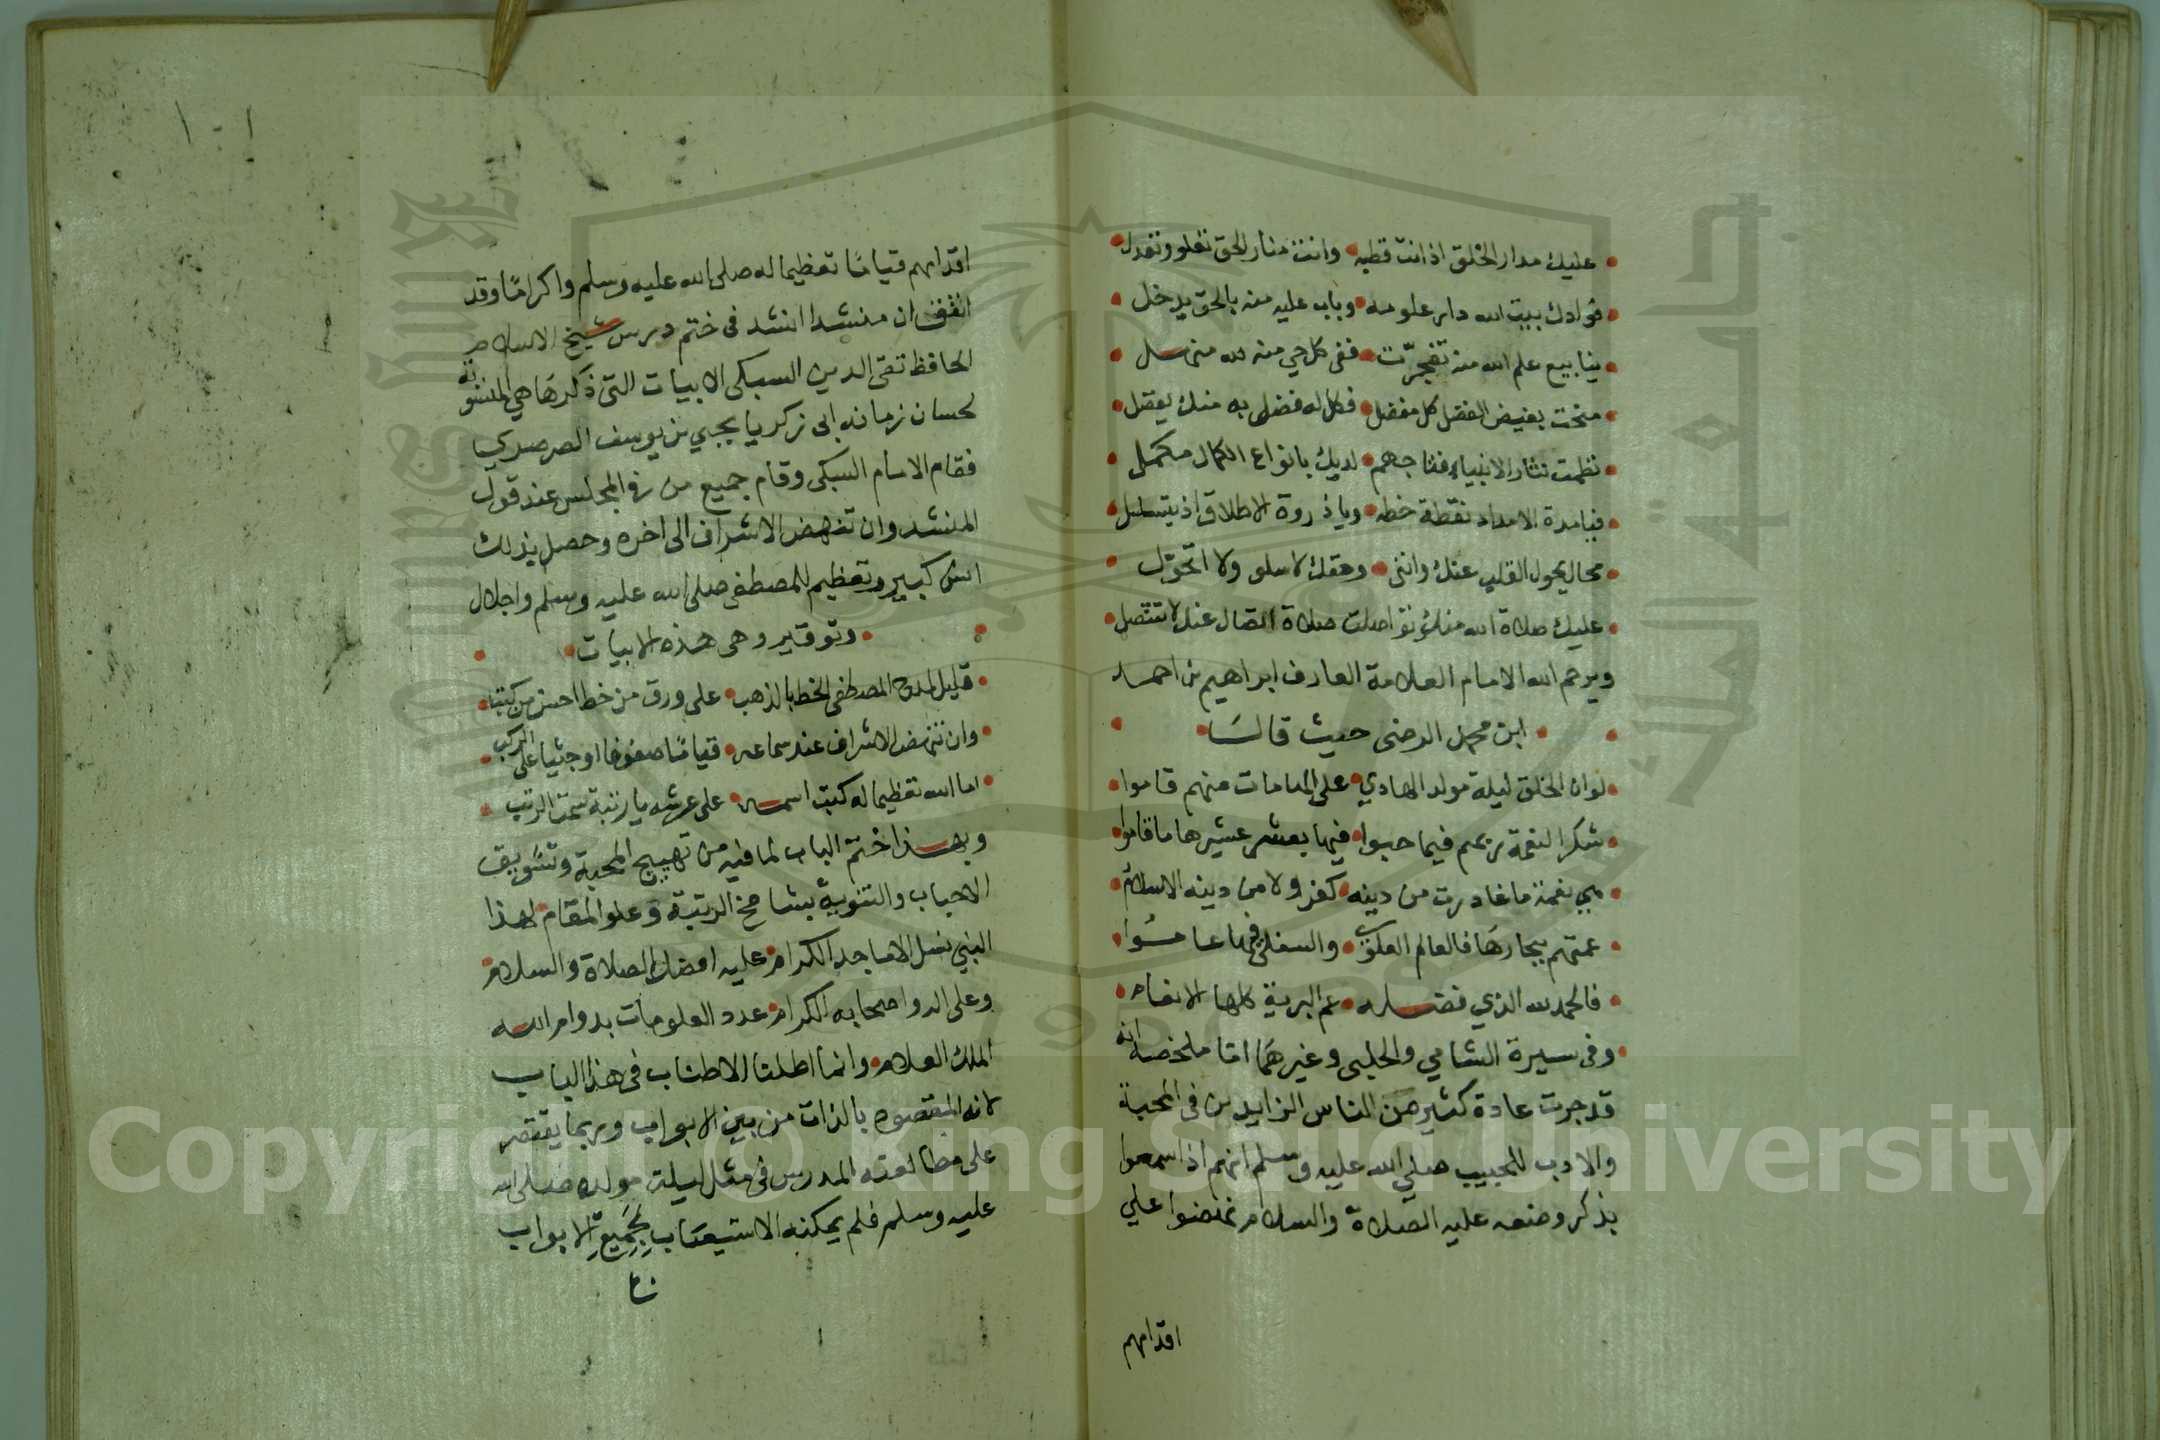 عليك مدار الخلق اذ انت قطبه وانت منار الحق تعلو وتعدل
فؤادك بيت الله دار علومه وباب عليه منه بالحق يدخل
ينابيع علم الله منه تفجرت ففى كل حي منه لله منهل
منحت بفيض الفضل كل مفضل فكل له فضل به منك يفضل
نظمت نثار الانبياء فتاجهم لديك بانواع الكمال مكمل
فيا مدة الامداد نقطة خطه ويا ذروة الاطلاق اذ يتسلسل
محال يحول القلب عنك وانني وحقك لا اسلو ولا اتحول
عليك صلاة الله منك تواصلت صلاة اتصال عنك لا تتنصل
ويرحم الله الامام العلامة العارف ابراهيم بن احمد
ابن محمد الرضى حيث قال
لو ان الخلق ليلة مولد الهادي على الهامات منهم قاموا
شكرا لنعمة ربهم فيما حبوا فيها بعشر عشيرها ما قاموا
هي نعمة ما غادرت من دينه كفر ولا من دينه الاسلام
عمتهم ببحارها فالعالم العلوي والسفلي فيها عاموا
فالحمد لله الذي فضله عم البرية كلها الانعام
وفى سيرة الشامي والحلبى وغيرهما اما ملخصه انه
قد جرت عادة كثير من الناس الزايدين فى المحبة
والادب للحبيب صلي الله عليه وسلم انهم اذا سمعوا
بذكر وضعه عليه الصلاة والسلام نهضوا علي
اقدامهم
اقدامهم قياما تعظيما له صلى الله عليه وسلم واكراما وقد
اتفق ان منشدا انشد فى ختم درس شيخ الاسلام
الحافظ تقى الدين السبكى الابيات التى ذكرها هي المنسوبة
لحسان زمانه ابى زكريا يحيي بن يوسف الصرصري
فقام الامام السبكى وقام جميع من فى المجلس عند قول
المنشد وان تنهض الاشراف الى اخره وحصل بذلك
انس كبير وتعظيم للمصطفى صلى الله عليه وسلم واجلال
وتوقير وهى هذه الابيات
قليل لمدح المصطفى الخط بالذهب على ورق من خط احسن من كتب
وان تنهض الاشراف عند سماعه قياما صفوفا او جثيا على الركب
اما الله تعظيما له كتب اسمه على عرشه يا رتبة سمت الرتب
وبهذا ختم الباب لما فيه من تهييج المحبة وتشويق
الاحباب والتنويه بشامخ الرتبة وعلو المقام لهذا
النبي نسل الاماجد الكرام عليه افضل الصلاة والسلام
وعلى اله واصحابه الكرام عدد المعلومات بدوام الله
الملك العلام وانما اطلنا الاطناب فى هذا الباب
لانه المقصود بالذات من بين الابواب وربما يقتصر
على مطالعته المدرس فى مثل ليلة مولده صلى الله
عليه وسلم فلم يمكنه الاستيعاب لجميع الابواب